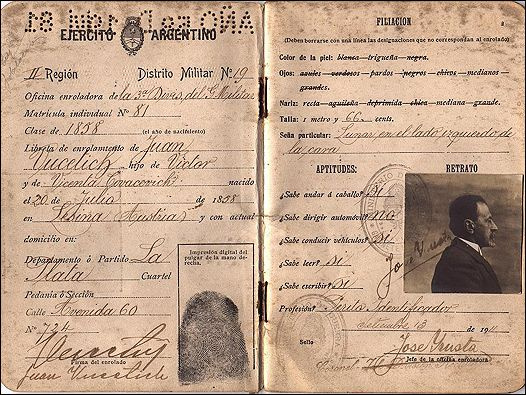 EJERCITO ARGENTINO
II Región Distrito Militar Nº 19
Oficina enroladora de la 3ª Divis. del G. Militar
Matrícula individual Nº 81
Clase de 1858 (el año de nacimiento)
Libreta de enrolamiento de Juan
Vucetich hijo de Victor
y de Vicenta Covacevich nacido
el 20 de Julio de 1858
en Lesina (Austria) y con actual
domicilio en:
Departamento ó Partido La
Plata Cuartel
Pedanía ó Sección
Calle Avenida 60
Nº 734
Firma del enrolado
Juan Vucetich
Impresión digital del
pulgar de la mano de-
recha.
FILIACIÓN
(Deben borrarse con una línea las designaciones que no correspondan al enrolado)
Color de la piel: blanca - trigueña - negra.
Ojos: azules - verdosos - pardos - negros - chicos - medianos -
grandes.
Nariz: recta - aguileña - deprimida - chica - mediana - grande.
Talla: 1 metro y 66 cents.
Seña particular: Lunar en el lado izquierdo de
la cara
APTITUDES:
RETRATO
¿Sabe andar á caballo? Si
¿Sabe dirigir automóvil? no
¿Sabe conducir vehículos? Si
¿Sabe leer? Si
¿Sabe escribir? Si
Profesión: Perito Identificador
Sello
José
Jefe de la oficina enroladora